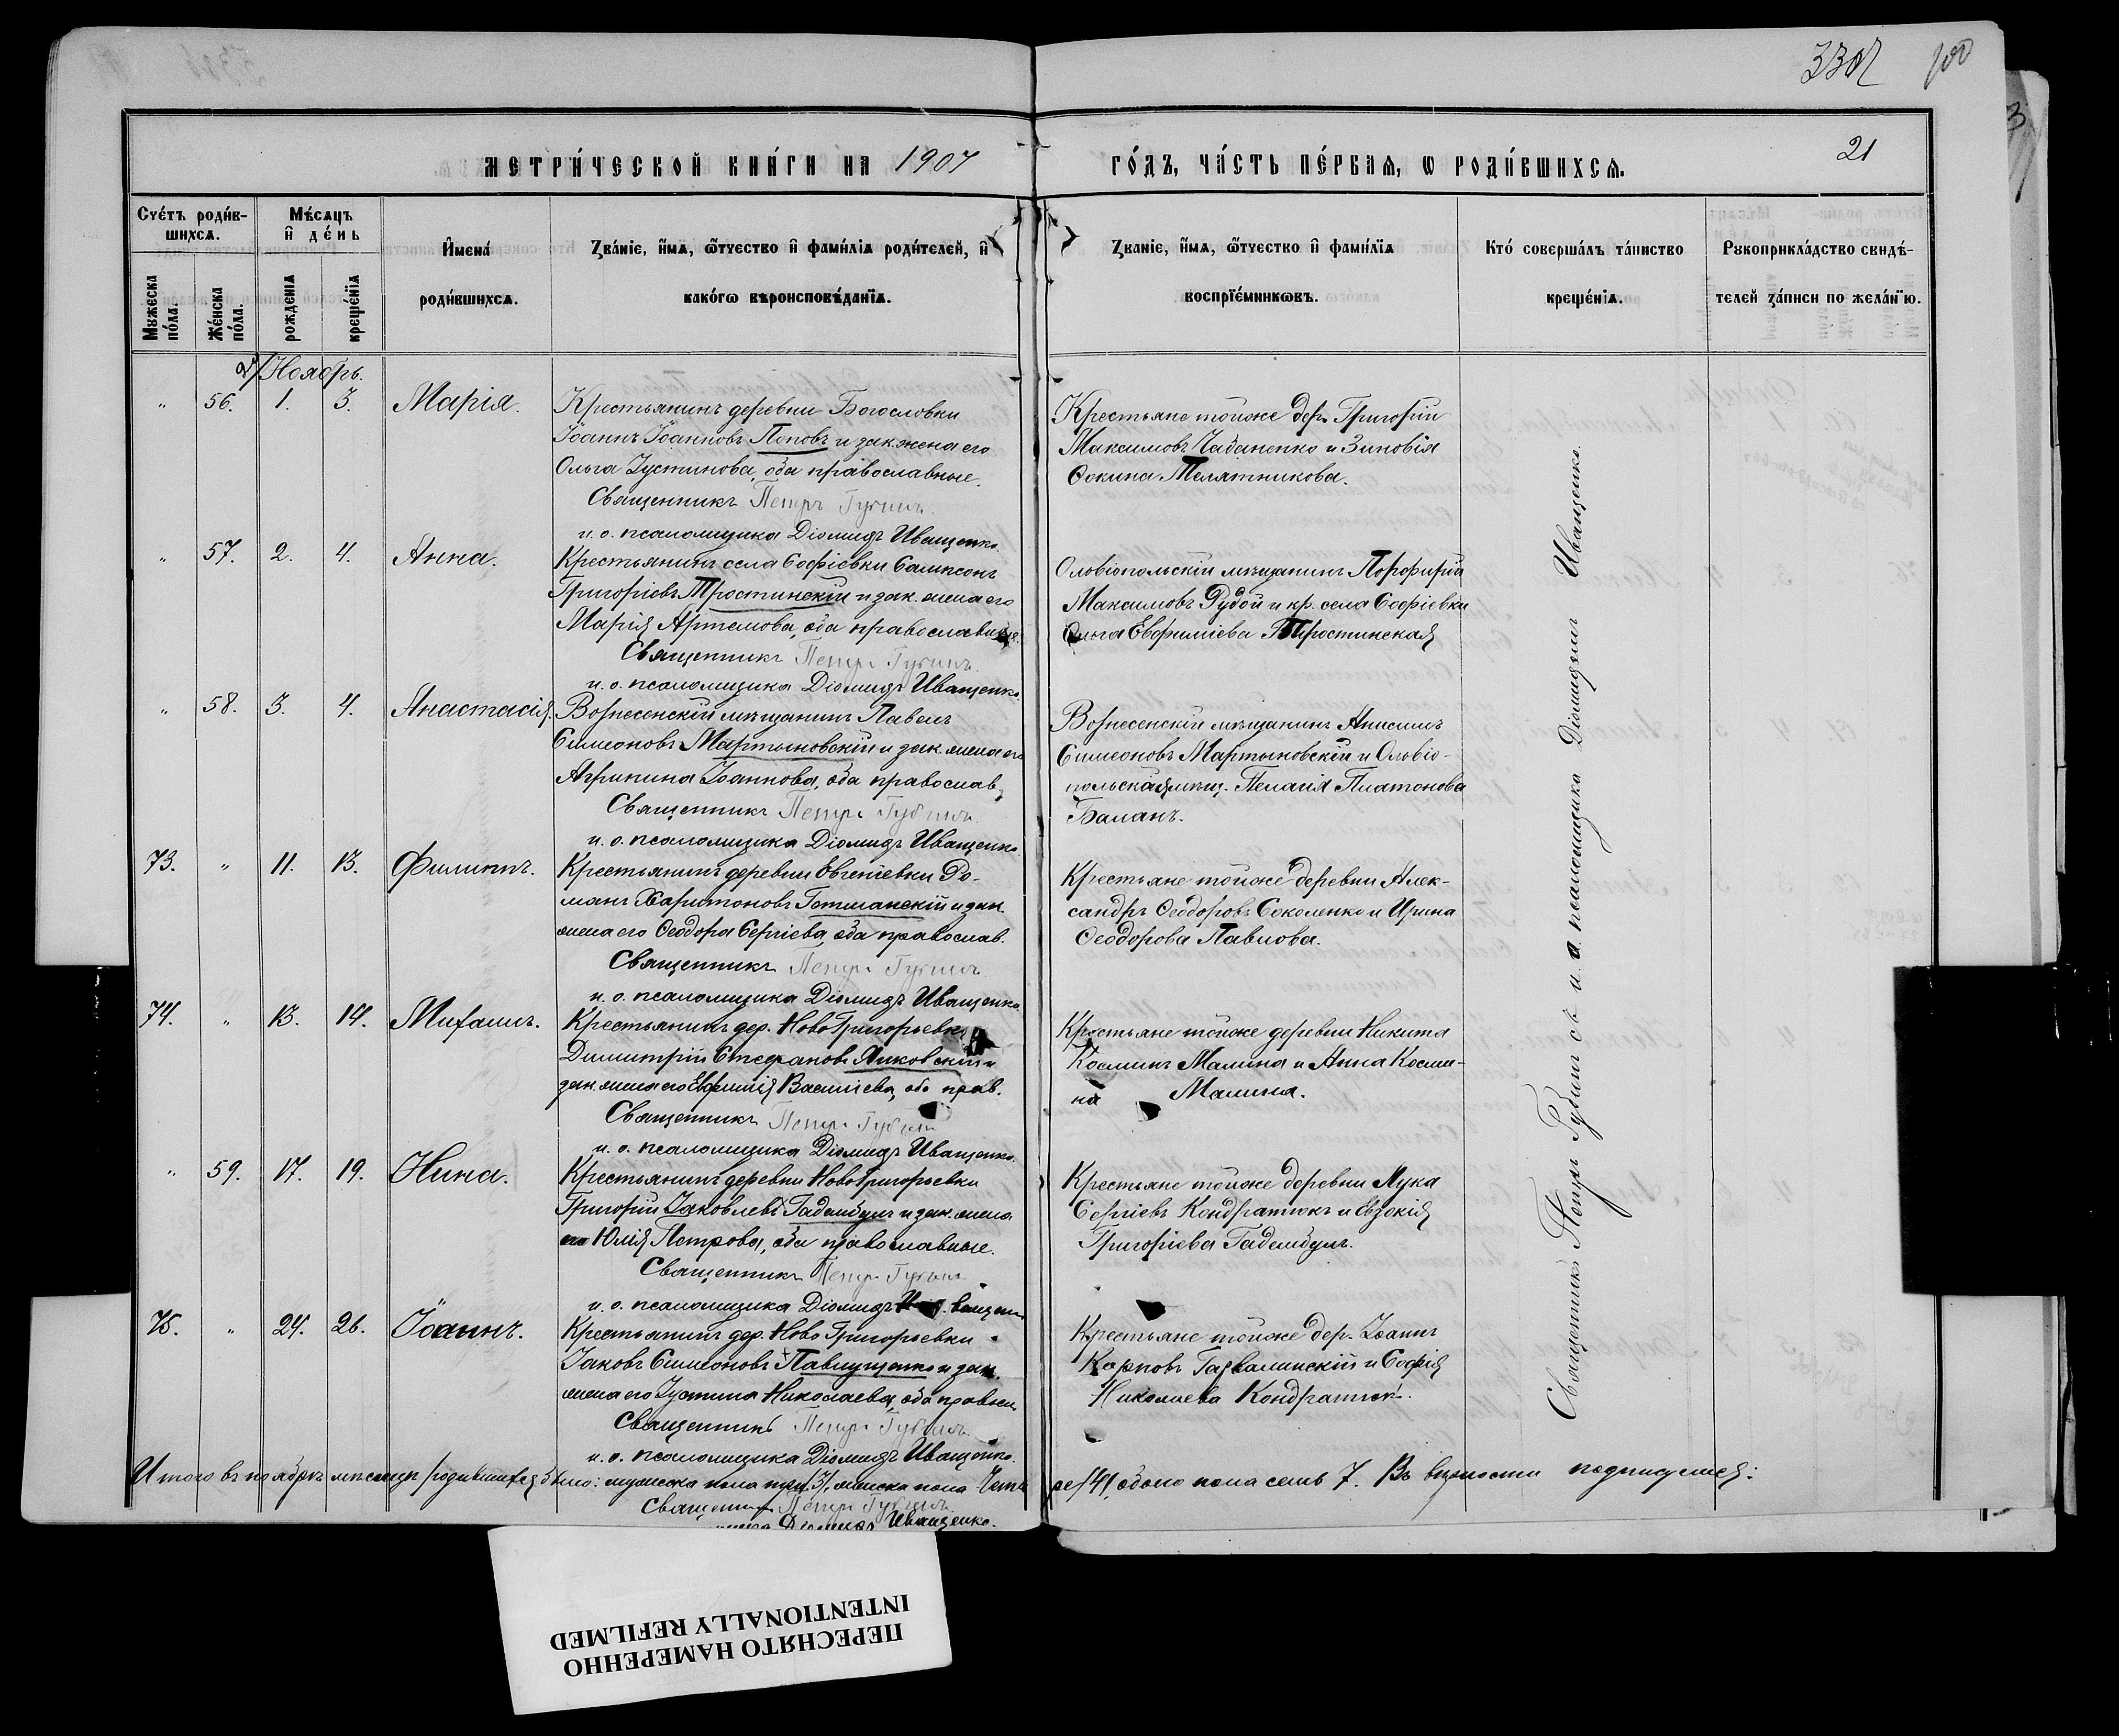 3302 100
МЕТРИ́ЧЕСКОЙ КНИ́ГИ НА 1907 ГО́ДЪ, ЧА́СТЬ ПЕ́РВАѦ, Ѡ РОДИ́ВШИХСѦ. 21
Сче́тъ роди́в-
шихсѧ.
Мꙋжеска по́ла.
Же́нска по́ла.
Мѣ́сѧцъ и҆ де́нь
рожденїѧ
креще́нїѧ
И҆мена́ роди́вшихсѧ.
Зва́нїе, и҆́мѧ, ѻ҆́тчество и҆ фами́лїѧ роди́телей, и҆
како́гѡ вѣроисповѣ́данїѧ.
Зва́нїе, и҆́мѧ, ѻ҆́тчество и҆ фами́лїѧ
воспрїе́мникѡвъ.
Кто́ соверша́лъ та́инство
креще́нїѧ.
Рꙋкоприкла́дство свидѣ́-
телей за́писи по жела́нїю.
Ноябрь.
" 56. 1. 3. Марія.
Крестьянинъ деревни Богословки
Іоаннъ Іоанновъ Поповъ и зак. жена его
Ольга Іустинова, оба православные.
Священникъ Петръ Губинъ.
и. о. псаломщика Діомидъ Иващенко.
Крестьяне тойже дер. Григорій
Максимовъ Чабаненко и Зиновія
Фокина Телятникова.
" 57. 2. 4. Анна.
Крестьянинъ села Софіевки Сампсонъ
Григоріевъ Тростинскій и зак. жена его
Марія Артемова, оба православные.
Священникъ Петръ Губинъ.
и. о. псаломщика Діомидъ Иващенко.
Ольвіопольскій мѣщанинъ Порфирій
Максимовъ Рудой и кр. села Софіевки
Ольга Евфиміева Тростинская
" 58. 3. 4. Анастасія.
Вознесенскій мѣщанинъ Павелъ
Симеоновъ Мартыновскій и зак. жена его
Агрипина Іоаннова, оба православ.
Священникъ Петръ Губинъ.
и. о. псаломщика Діомидъ Иващенко.
Вознесенскій мѣщанинъ Анисимъ
Симеоновъ Мартыновскій и Ольвіо-
польская мѣщ. Пелагія Платонова
Баланъ.
73. " 11. 13. Филиппъ.
Крестьянинъ деревни Евгеніевки Ро-
манъ Харитоновъ Гетманскій и зак.
жена его Ѳеодора Сергіева, оба православ.
Священникъ Петръ Губинъ.
и. о. псаломщика Діомидъ Иващенко.
Крестьяне тойже деревни Алек-
сандръ Ѳеодоровъ Соколенко и Ирина
Ѳеодорова Павлова.
74. " 13. 14. Михаилъ.
Крестьянинъ дер. НовоГригорьевки
Димитрій Стефановъ Янковскій и
зак. жена его Ефимія Васильева, об. прав.
Священникъ Петръ Губинъ
и. о. псаломщика Діомидъ Иващенко.
Крестьяне тойже деревни Никита
Косминъ Малина и Анна Косми-
на Малина.
" 59. 17. 19. Нина.
Крестьянинъ деревни НовоГригорьевки
Григорій Іаковлевъ Гадембулъ и зак. жена
его Юлія Петрова, оба православные.
Священникъ Петръ Губинъ
и. о. псаломщика Діомидъ
Крестьяне тойже деревни Лука
Сергіевъ Кондратюкъ и Евдокія
Григоріева Гадембулъ.
75. " 24. 26. Іоаннъ.
Крестьянинъ дер. НовоГригорьевки
Іаковъ Симеоновъ Павлущенко и зак.
жена его Іустина Николаева, оба правосл.
Священникъ Петръ Губинъ.
и. о. псаломщика Діомидъ Иващенко.
Крестьяне тойже дер. Іоаннъ
Карповъ и Софія
Николаева Кондратюкъ.
Священникъ Петръ Губинъ и. о. псаломщика Діомидъ Иващенко.
Итого въ ноябрѣ мѣсяцѣ родившихся было: мужеска пола три /3/, женска пола четы
ре /4/, обоего пола семь 7. Въ вѣрности подписуемся:
Священникъ Петръ Губинъ.
Діомидъ Иващенко.
ПЕРЕСНЯТО НАМЕРЕННО
INTENTIONALLY REFILMED